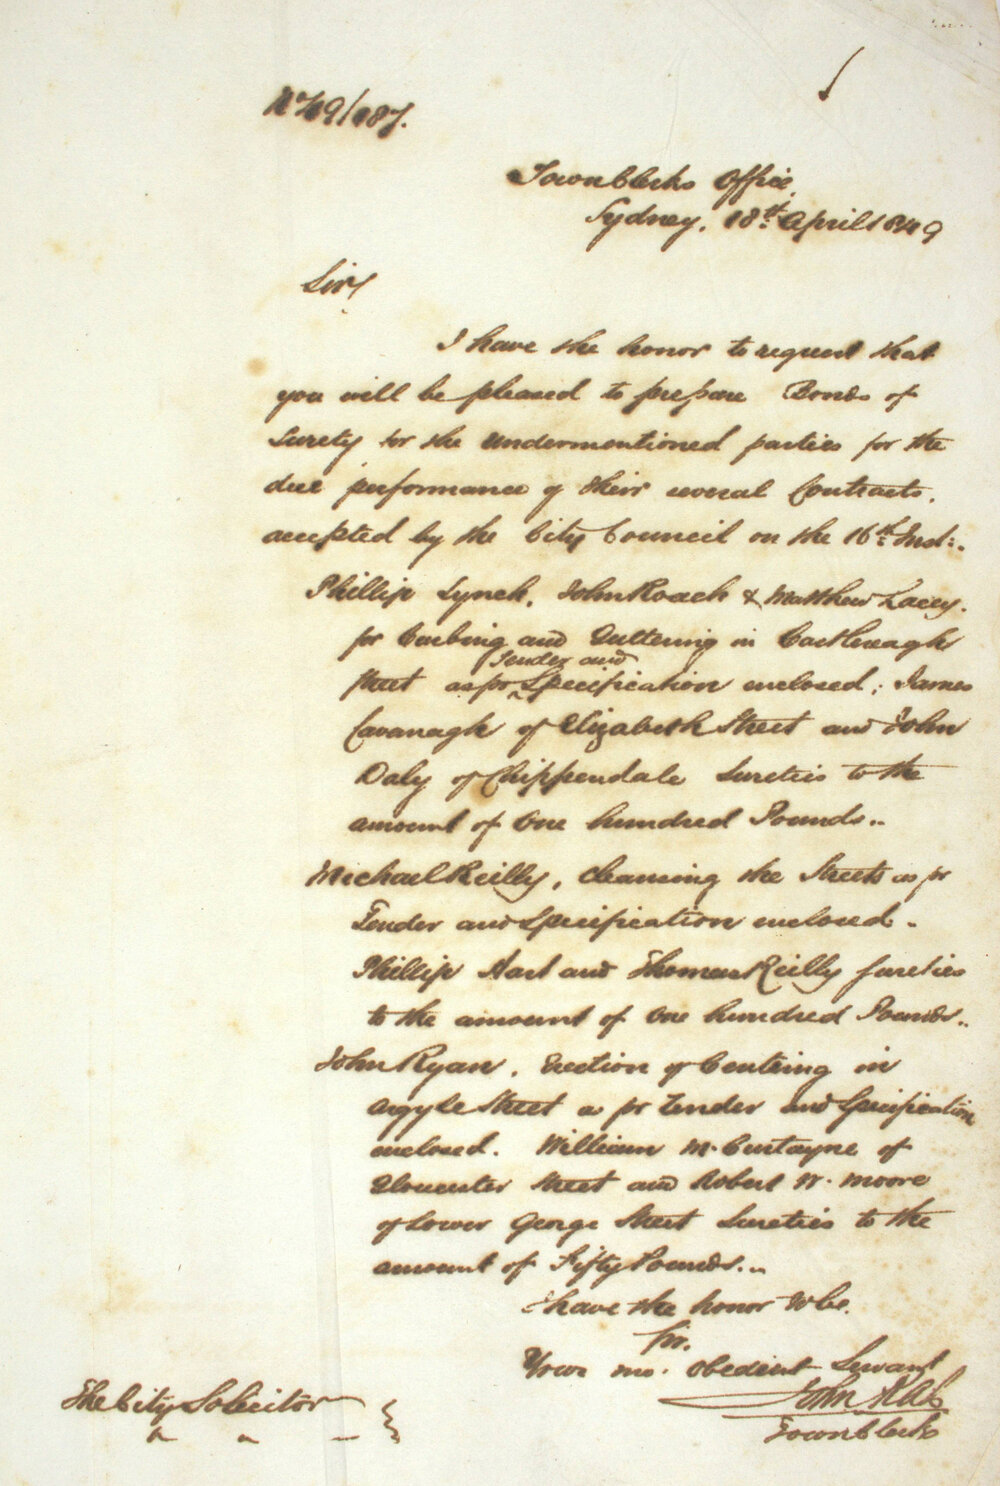 No 49/187.
Town Clerks Office,
Sydney, 18th April 1849
Sir/
I have the honor to request that
you will be pleased to prepare Bonds of
Surety for the undermentioned parties for the
due performance of their several Contracts,
accepted by the City Council on the 16th Inst:.
Phillip Lynch, John Roach & Matthew Lacey.
for Curbing and Guttering in Castlereagh
tender and
Street as pr Specification enclosed; James
Cavanagh of Elizabeth Street and John
Daly of Chippendale Sureties to the
amount of One hundred Pounds..
Michael Reilly, cleansing the Streets as pr
Tender and Specification enclosed.
Phillip Hart and Thomas Reilly sureties
to the amount of One hundred Pounds..
John Ryan, Erection of Centring in
Argyle Street as pr Tender and Specification
enclosed. William M. Curtayne of
Gloucester Street and Robert W. Moore
of Lower George Street Sureties to the
amount of Fifty Pounds...
I have the honor to be.
Sir.
Your mo. Obedient Servant
John
Town Clerk
The City Solicitor